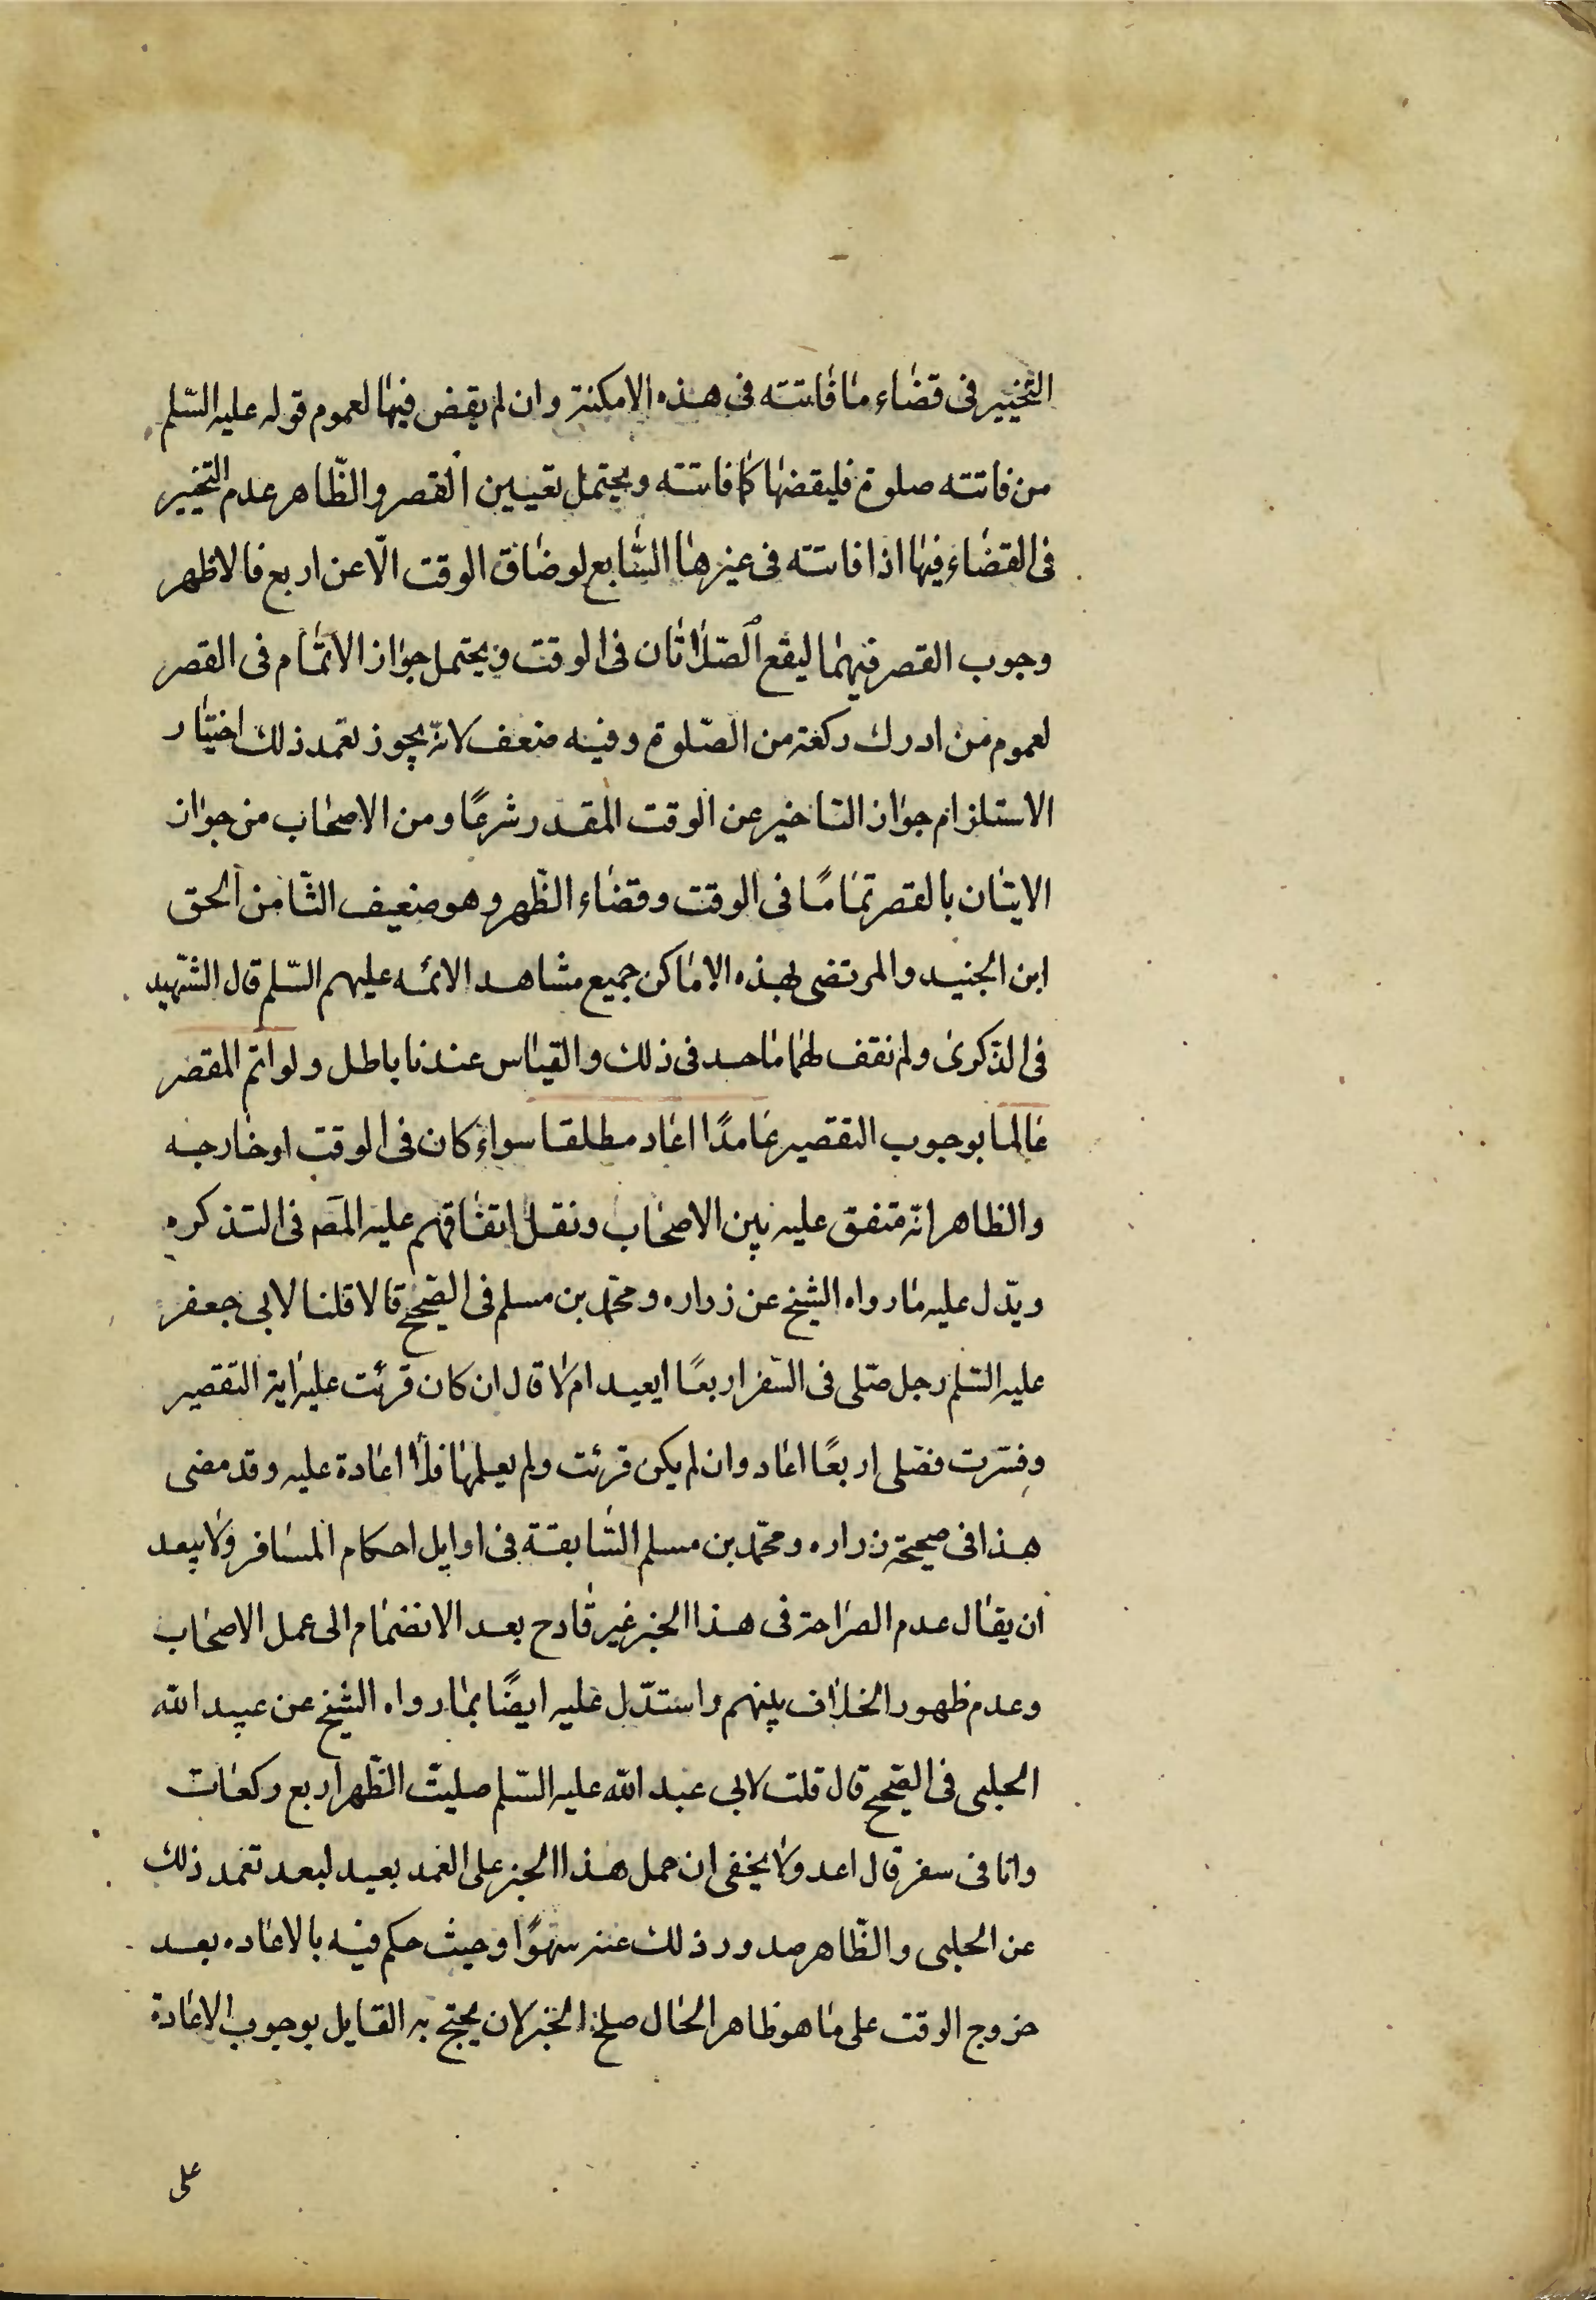 التخيير فى قضاء ما فاتته فى هذه الامكنة وان لم يقض فيها لعموم قوله عليه السّلم
من فاتته صلوة فليقضها كما فاتته ويحتمل تعيين القصر والظّاهر عدم التخيير
فى القضاء فيها اذا فاتته فى غيرها السّابع لو ضاق الوقت الّا عن اربع فالاظهر
وجوب القصر فيهما ليقع الصّلاتان فى الوقت ويحتمل جواز الاتمام فى القصر
لعموم من ادرك ركعة من الصّلوة وفيه ضعف لانّه يجوز تعمد ذلك اختيار
الاستلزام جواز التاخير عن الوقت المقدر شرعًا ومن الاصحاب من جواز
الايتان بالقصر تمامًا فى الوقت وقضاء الظّهر وهو ضعيف الثّامن الحق
ابن الجنيد والمرتضى بهذه الاماكن جميع مشاهد الائمه عليهم السّلم قال الشّهيد
فى الذّكرى ولم نقف لهما ماحد فى ذلك والقياس عندنا باطل ولو اتم المقصر
عالما بوجوب التقصير عامدًا اعاد مطلقا سواء كان فى الوقت او خارجه
والظاهر انّه متفق عليه بين الاصحاب ونقل اتفاقهم عليه المصَ فى التذكره
ويدّل عليه ما رواه الشيخ عن زراره ومحمّد بن مسلم فى الصّحيح قالا قلنا لابى جعفر
عليه السّلم رجل صّلى فى السّفر اربعًا ايعيد ام لا قال ان كان قرئت عليه اية التقصير
وفسّرت فصّلى اربعًا اعاد وان لم يكن قرئت ولم يعلمها فلا اعادة عليه وقد مضى
هذا فى صحيحة زراره ومحمّد بن مسلم السّابقة فى اوايل احكام المسافر ولا يبعد
ان يقال عدم الصراحة فى هذا الخبر غير قادح بعد الانضمام الى عمل الاصحاب
وعدم ظهور الخلاف بينهم واستدّل عليه ايضًا بما رواه الشيخ عن عبيد الله
الحلبى فى الصّحيح قال قلت لابى عبد الله عليه السّلم صليت الظّهر اربع ركعات
وانا فى سفر قال اعد ولا يخفى ان حمل هذا الخبر على العمد بعيد لبعد تعمد ذلك
عن الحلبى والظّاهر صدور ذلك عنه سهوًا وحيث حكم فيه بالاعاده بعد
خروج الوقت على ما هو ظاهر الحال صلح الخبر لان يحتج به القايل بوجوب الاعادة
على